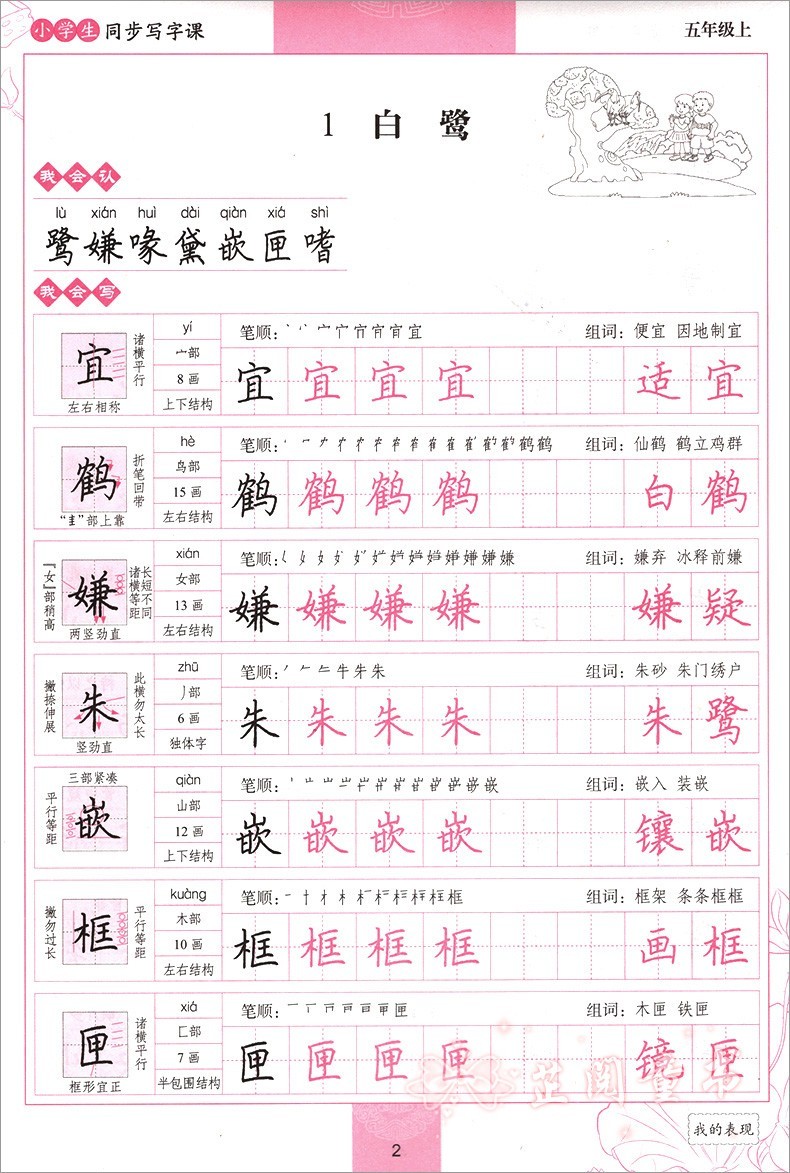 小学生同步写字课
五年级上
1 白鹭
我会认
lù xián huì dài qiàn xiá shì
鹭嫌喙黛嵌匣嗜
我会写
宜
诸横平行
左右相称
yí
宀部
8画
上下结构
笔顺:
组词：便宜 因地制宜
宜宜宜宜 适宜
鹤
折笔回带
“隹”部上靠
hè
鸟部
15画
左右结构
笔顺:
组词：仙鹤 鹤立鸡群
鹤鹤鹤鹤 白鹤
『女』部稍高
嫌
长短不同
诸横等距
两竖劲直
xián
女部
13画
左右结构
笔顺:
组词：嫌弃 冰释前嫌
嫌嫌嫌嫌 嫌疑
撇捺伸展
朱
此横勿太长
竖劲直
zhū
丿部
6画
独体字
笔顺:
组词：朱砂 朱门绣户
朱朱朱朱 朱鹭
三部紧凑
平行等距
嵌
qiàn
山部
12画
上下结构
笔顺:
组词：嵌入 装嵌
嵌嵌嵌嵌 镶嵌
撇勿过长
框
平行等距
kuàng
木部
10画
左右结构
笔顺:
组词：框架 条条框框
框框框框 画框
匣
诸横平行
框形宜正
xiá
匚部
7画
半包围结构
笔顺:
组词：木匣 铁匣
匣匣匣匣 镜匣
芷阅童书
我的表现
2